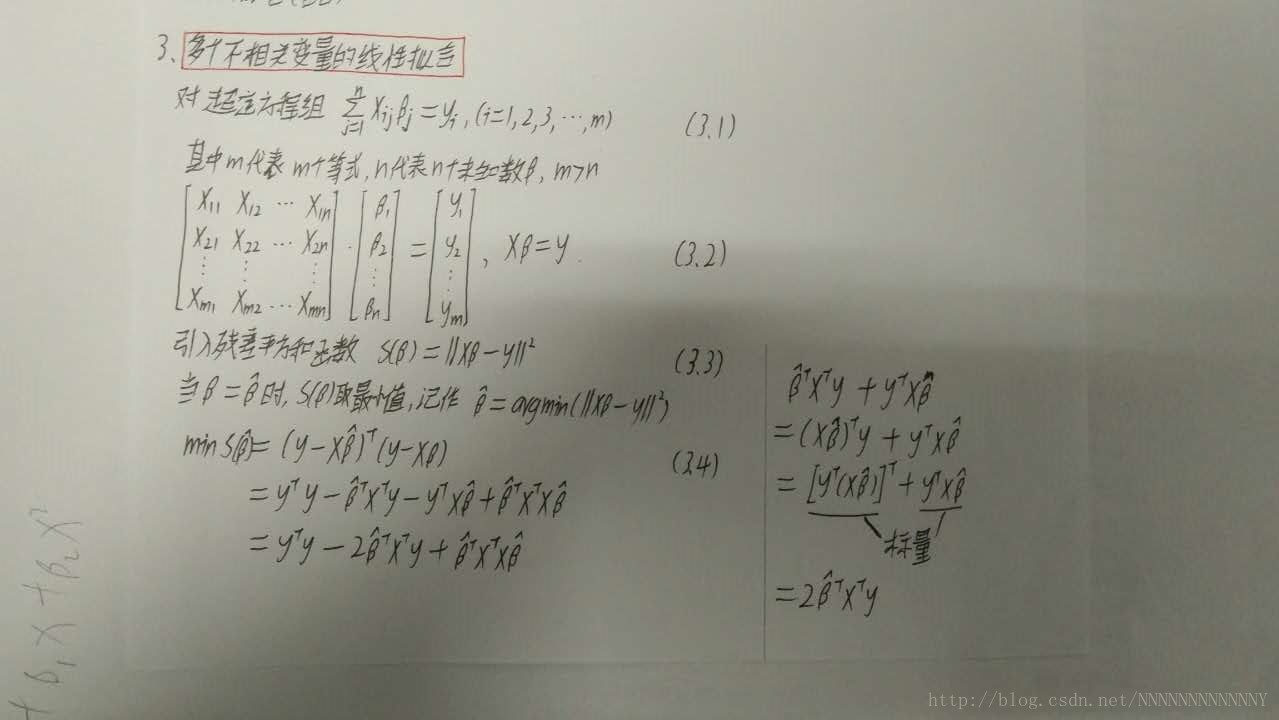 3、多个不相关变量的线性拟合
对超定方程组 ∑_{j=1}^{n} x_{ij} β_j = y_i, (i=1,2,3,…,m) (3.1)
其中m代表m个等式, n代表n个未知数β, m>n
[x_{11} x_{12} … x_{1n}; x_{21} x_{22} … x_{2n}; ⋮ ⋮ ⋮; x_{m1} x_{m2} … x_{mn}] · [β_1; β_2; ⋮; β_n] = [y_1; y_2; ⋮; y_m], Xβ=y. (3.2)
引入残差平方和函数 S(β) = ||Xβ-y||² (3.3)
当β=β̂时, S(β)取最小值, 记作 β̂ = argmin(||Xβ-y||²)
min S(β̂) = (y-Xβ̂)ᵀ(y-Xβ) (3.4)
= yᵀy - β̂ᵀXᵀy - yᵀXβ̂ + β̂ᵀXᵀXβ̂
= yᵀy - 2β̂ᵀXᵀy + β̂ᵀXᵀXβ̂
β̂ᵀXᵀy + yᵀXβ̂
= (Xβ̂)ᵀy + yᵀXβ̂
= [yᵀ(Xβ̂)]ᵀ + yᵀXβ̂
标量
= 2β̂ᵀXᵀy
+ β_1 X + β_2 X²
http://blog.csdn.net/NNNNNNNNNNNNNY